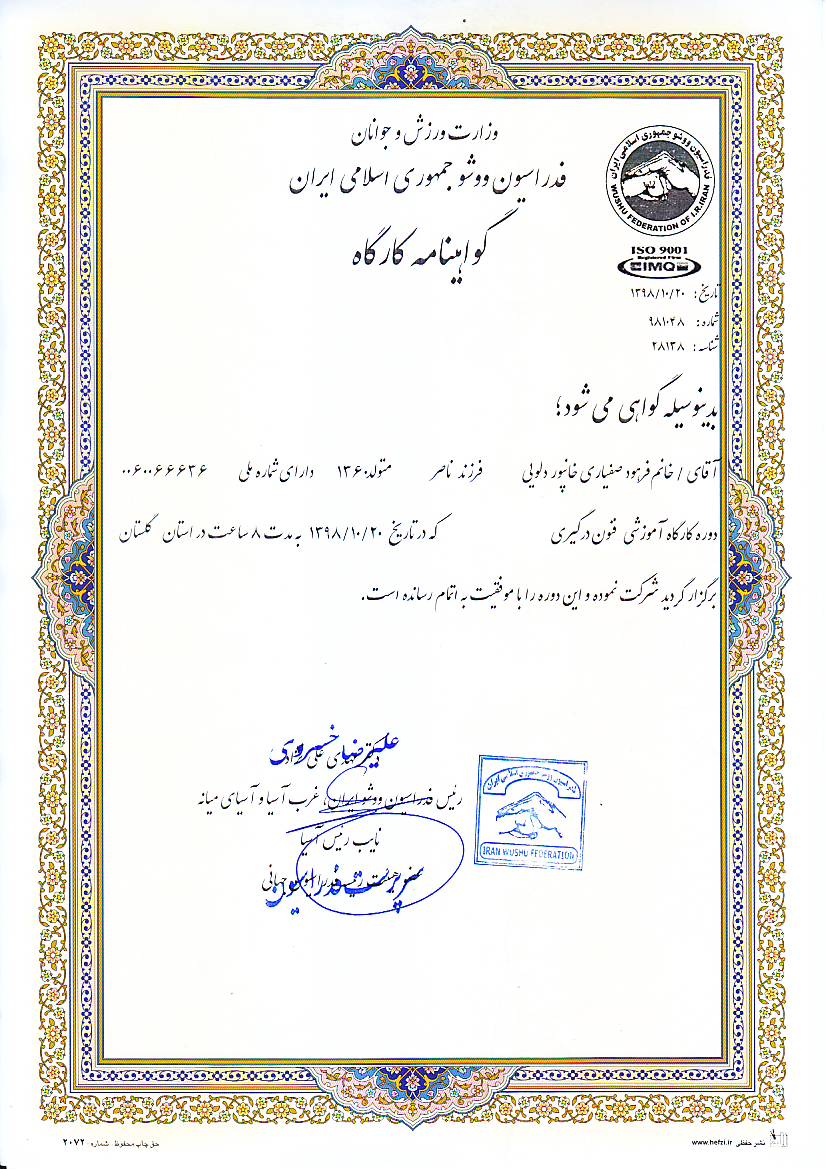 وزارت ورزش و جوانان
فدراسیون ووشو جمهوری اسلامی ایران
گواهینامه کارگاه
فدراسیون ووشو جمهوری اسلامی ایران
WUSHU FEDERATION OF I.R.IRAN
ISO 9001
Registered Firm
IMQ
تاریخ: ۱۳۹۸/۱۰/۲۰
شماره: ۹۸۱۰۴۸
شناسه: ۲۸۱۳۸
بدینوسیله گواهی می شود؛
آقای / خانم فرهود صفیاری خانپور دلویی فرزند ناصر متولد ۱۳۶۰ دارای شماره ملی ۰۰۶۰۰۶۶۶۳۶
دوره کارگاه آموزشی فنون درگیری که در تاریخ ۱۳۹۸/۱۰/۲۰ به مدت ۸ ساعت در استان گلستان
برگزار گردید شرکت نموده و این دوره را با موفقیت به اتمام رسانده است.
علیرضا خسروی
دکتر مهدی علی نژاد
رئیس فدراسیون ووشو ایران، غرب آسیا و آسیای میانه
نایب رئیس آسیا
سرپرست فدراسیون
فدراسیون ووشو جمهوری اسلامی ایران
IRAN WUSHU FEDERATION
حق چاپ محفوظ شماره ۲۰۷۲
نشر حفظی www.hefzi.ir